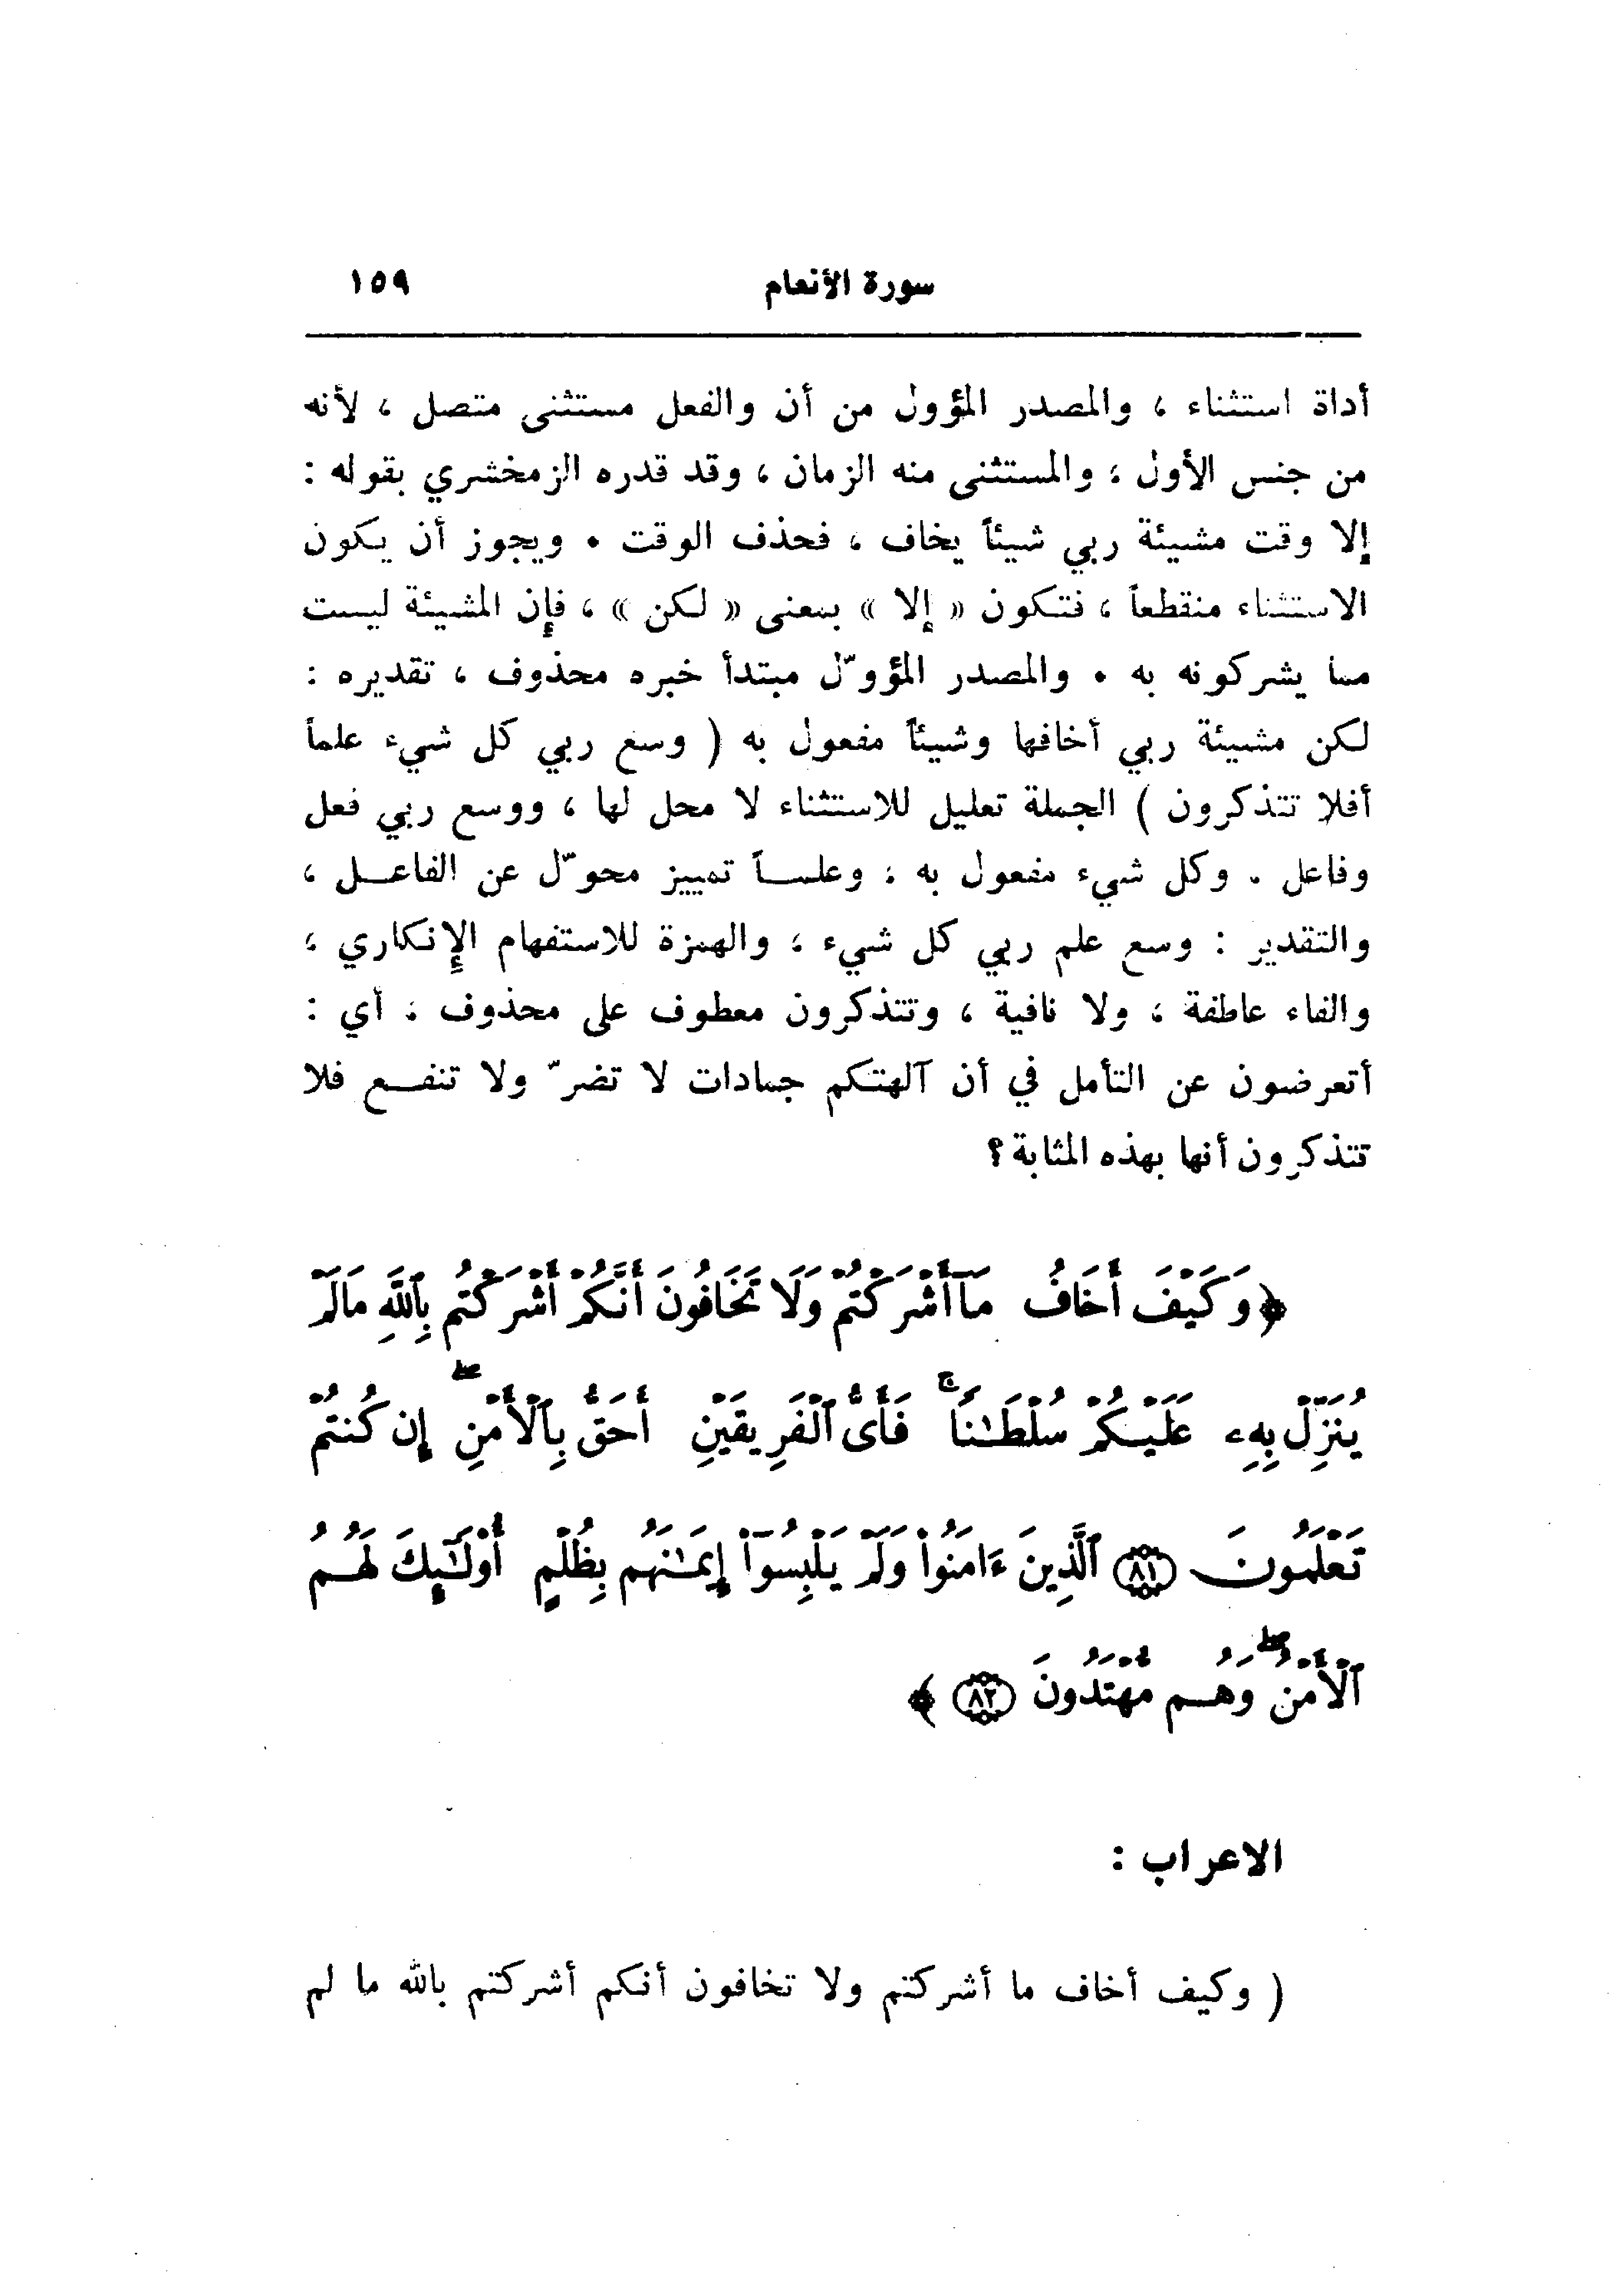 سورة الأنعام ١٥٩
أداة استثناء ، والمصدر المؤول من أن والفعل مستثنى متصل ، لأنه
من جنس الأول ، والمستثنى منه الزمان ، وقد قدره الزمخشري بقوله :
إلا وقت مشيئة ربي شيئاً يخاف ، فحذف الوقت . ويجوز أن يكون
الاستثناء منقطعاً ، فتكون « إلا » بمعنى « لكن » ، فإن المشيئة ليست
مما يشركونه به . والمصدر المؤوّل مبتدأ خبره محذوف ، تقديره :
لكن مشيئة ربي أخافها وشيئاً مفعول به ( وسع ربي كل شيء علماً
أفلا تتذكرون ) الجملة تعليل للاستثناء لا محل لها ، ووسع ربي فعل
وفاعل . وكل شيء مفعول به ، وعلماً تمييز محوّل عن الفاعل ،
والتقدير : وسع علم ربي كل شيء ، والهمزة للاستفهام الإنكاري ،
والفاء عاطفة ، ولا نافية ، وتتذكرون معطوف على محذوف ، أي :
أتعرضون عن التأمل في أن آلهتكم جمادات لا تضرّ ولا تنفع فلا
تتذكرون أنها بهذه المثابة ؟
﴿ وَكَيْفَ أَخَافُ مَآ أَشْرَكْتُمْ وَلَا تَخَافُونَ أَنَّكُمْ أَشْرَكْتُم بِٱللَّهِ مَا لَمْ
يُنَزِّلْ بِهِۦ عَلَيْكُمْ سُلْطَـٰنًا ۚ فَأَىُّ ٱلْفَرِيقَيْنِ أَحَقُّ بِٱلْأَمْنِ ۖ إِن كُنتُمْ
تَعْلَمُونَ ٨١ ٱلَّذِينَ ءَامَنُوا۟ وَلَمْ يَلْبِسُوٓا۟ إِيمَـٰنَهُم بِظُلْمٍ أُو۟لَـٰٓئِكَ لَهُمُ
ٱلْأَمْنُ ۖ وَهُم مُّهْتَدُونَ ٨٢ ﴾
الاعراب :
( وكيف أخاف ما أشركتم ولا تخافون أنكم أشركتم بالله ما لم